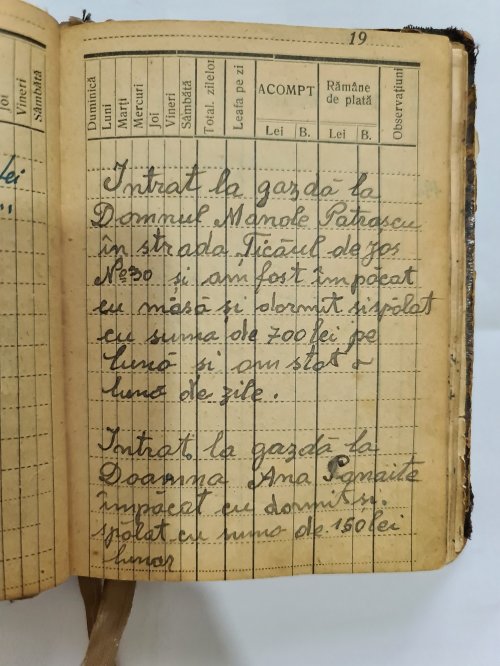 19
Vineri
Sâmbătă
lei
"
Duminică
Luni
Marți
Mercuri
Joi
Vineri
Sâmbătă
Total. zilelor
Leafa pe zi
ACOMPT
Lei B.
Rămâne
de plată
Lei B.
Observațiuni
Intrat la gazdă la
Domnul Manole Patrașcu
în strada Ticăul de jos
No 30 și am fost împăcat
cu măsă și dormit si spălat
cu suma de 700 lei pe
lună și am stat o
lună de zile.
Intrat la gazdă la
Doamna Ana Panaite
împăcat cu dormit și.
spălat cu suma de 150 lei
lunar